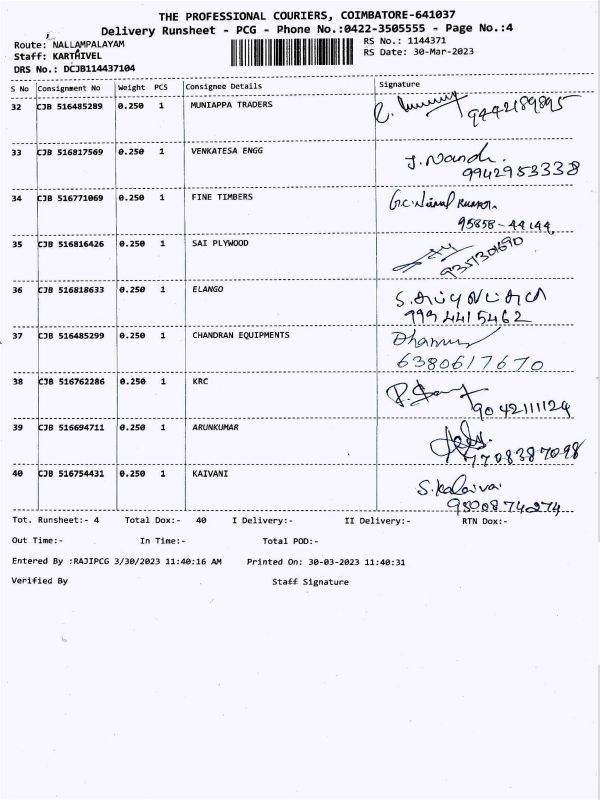 THE PROFESSIONAL COURIERS, COIMBATORE-641037
Delivery Runsheet - PCG - Phone No.:0422-3505555 - Page No.:4
Route: NALLAMPALAYAM
RS No.: 1144371
Staff: KARTHIVEL
RS Date: 30-Mar-2023
DRS No.: DCJB114437104
S No Consignment No Weight PCS Consignee Details Signature
32 CJB 516485289 0.250 1 MUNIAPPA TRADERS
9442189895
33 CJB 516817569 0.250 1 VENKATESA ENGG J. Nandi.
9942953338
34 CJB 516771069 0.250 1 FINE TIMBERS G.C. Nirmal Kumar.
95858-44144
35 CJB 516816426 0.250 1 SAI PLYWOOD
36 CJB 516818633 0.250 1 ELANGO
9994415462
37 CJB 516485299 0.250 1 CHANDRAN EQUIPMENTS
6380617670
38 CJB 516762286 0.250 1 KRC
9042111124
39 CJB 516694711 0.250 1 ARUNKUMAR
7708387098
40 CJB 516754431 0.250 1 KAIVANI S. Kalaivai
Tot. Runsheet:- 4 Total Dox:- 40 I Delivery:- II Delivery:- RTN Dox:-
Out Time:- In Time:- Total POD:-
Entered By :RAJIPCG 3/30/2023 11:40:16 AM Printed On: 30-03-2023 11:40:31
Verified By Staff Signature